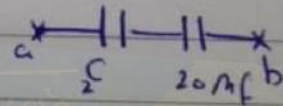 a C₂ 20 Mf b